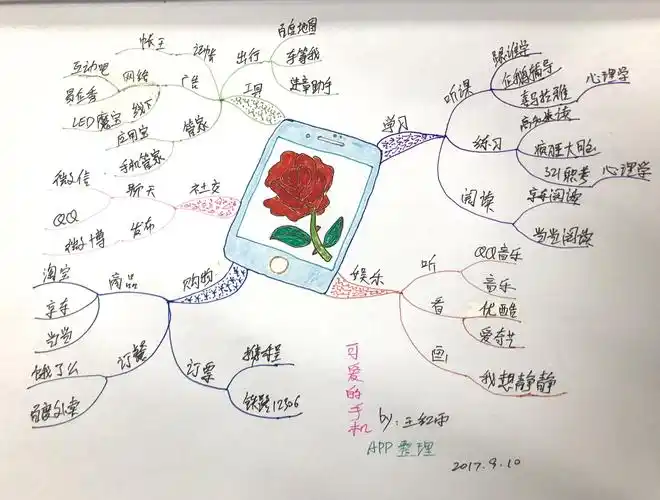 百度地图
车等我
违章助手
出行
工具
记帐
帐王
广告
网络
互动吧
易企秀
线下
LED魔宝
管家
应用宝
手机管家
社交
聊天
微信
QQ
发布
微博
购物
商品
淘宝
京东
当当
订餐
饿了么
百度外卖
订票
携程
铁路12306
学习
听课
跟谁学
企鹅辅导
喜马拉雅
心理学
练习
疯狂大脑
321职考
心理学
阅读
京东阅读
当当阅读
娱乐
听
QQ音乐
音乐
看
优酷
爱奇艺
画
我想静静
可爱的手机
APP整理
by:王红雨
2017.9.10